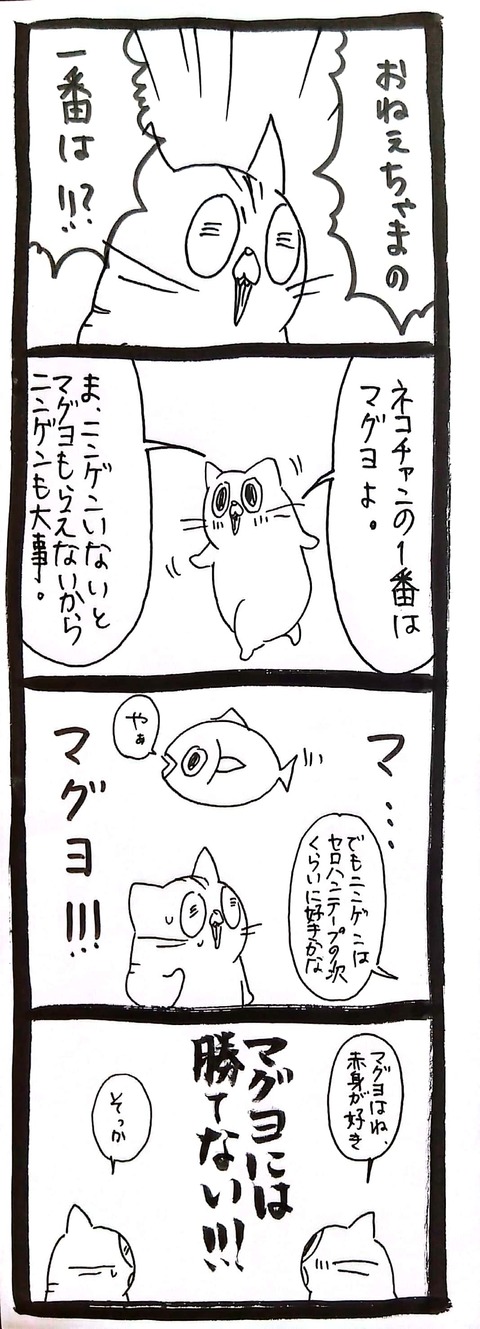 おねえちゃまの
一番は!!?
ネコチャンの1番は
マグヨよ。
ま、ニンゲンいないと
マグヨもらえないから
ニンゲンも大事。
マ…
でもニンゲンは
セロハンテープの次
くらいに好きかな
やぁ
マグヨ!!!
マグヨはね、
赤身が好き
マグヨには
勝てない!!!
そっか